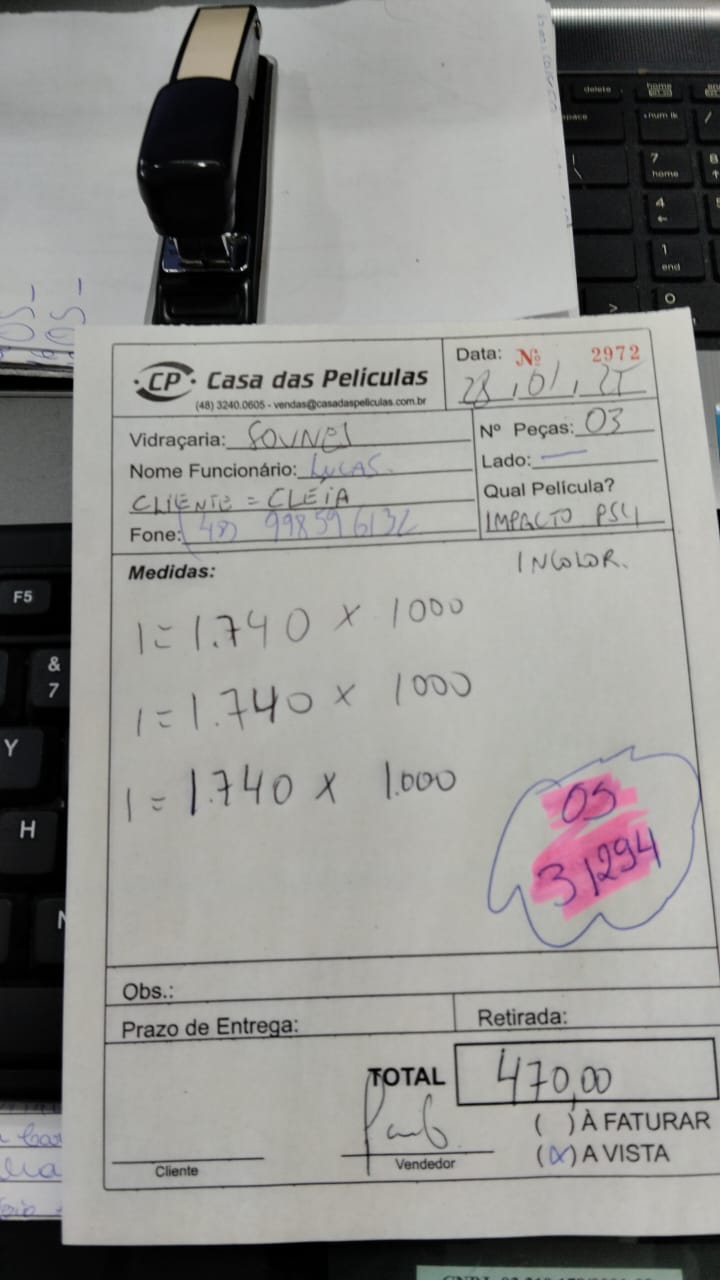 delete
home
num lk
7
home
8
4
1
end
0
CP Casa das Películas
(48) 3240.0605 - vendas@casadaspeliculas.com.br
Data: Nº 2972
28,01,25
Vidraçaria:
Nº Peças: 03
Nome Funcionário: LUCAS.
Lado: —
CLIENTE = CLEIA
Qual Película?
Fone: (48) 998596132
IMPACTO PS4
INCOLOR.
Medidas:
1 = 1.740 x 1000
1 = 1.740 x 1000
1 = 1.740 x 1.000
OS
31294
Obs.:
Prazo de Entrega:
Retirada:
TOTAL 470,00
( ) À FATURAR
(X) A VISTA
Cliente
Vendedor
F5
&
7
Y
H